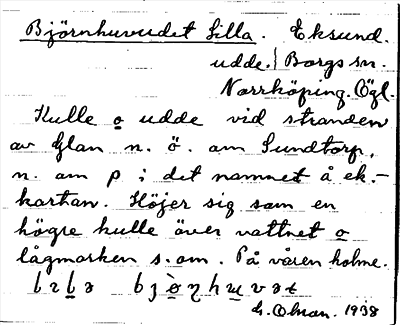 Björnhuvudet Lilla. Eksund.
udde.} Borgs sn.
Norrköping. Ögl.
Kulle o udde vid stranden
av Glan n. ö. om Sundtorp,
n. om p i det namnet å ek.-
kartan. Höjer sig som en
högre kulle över vattnet o
lågmarken s. om. På våren holme.
G. Olsson. 1938